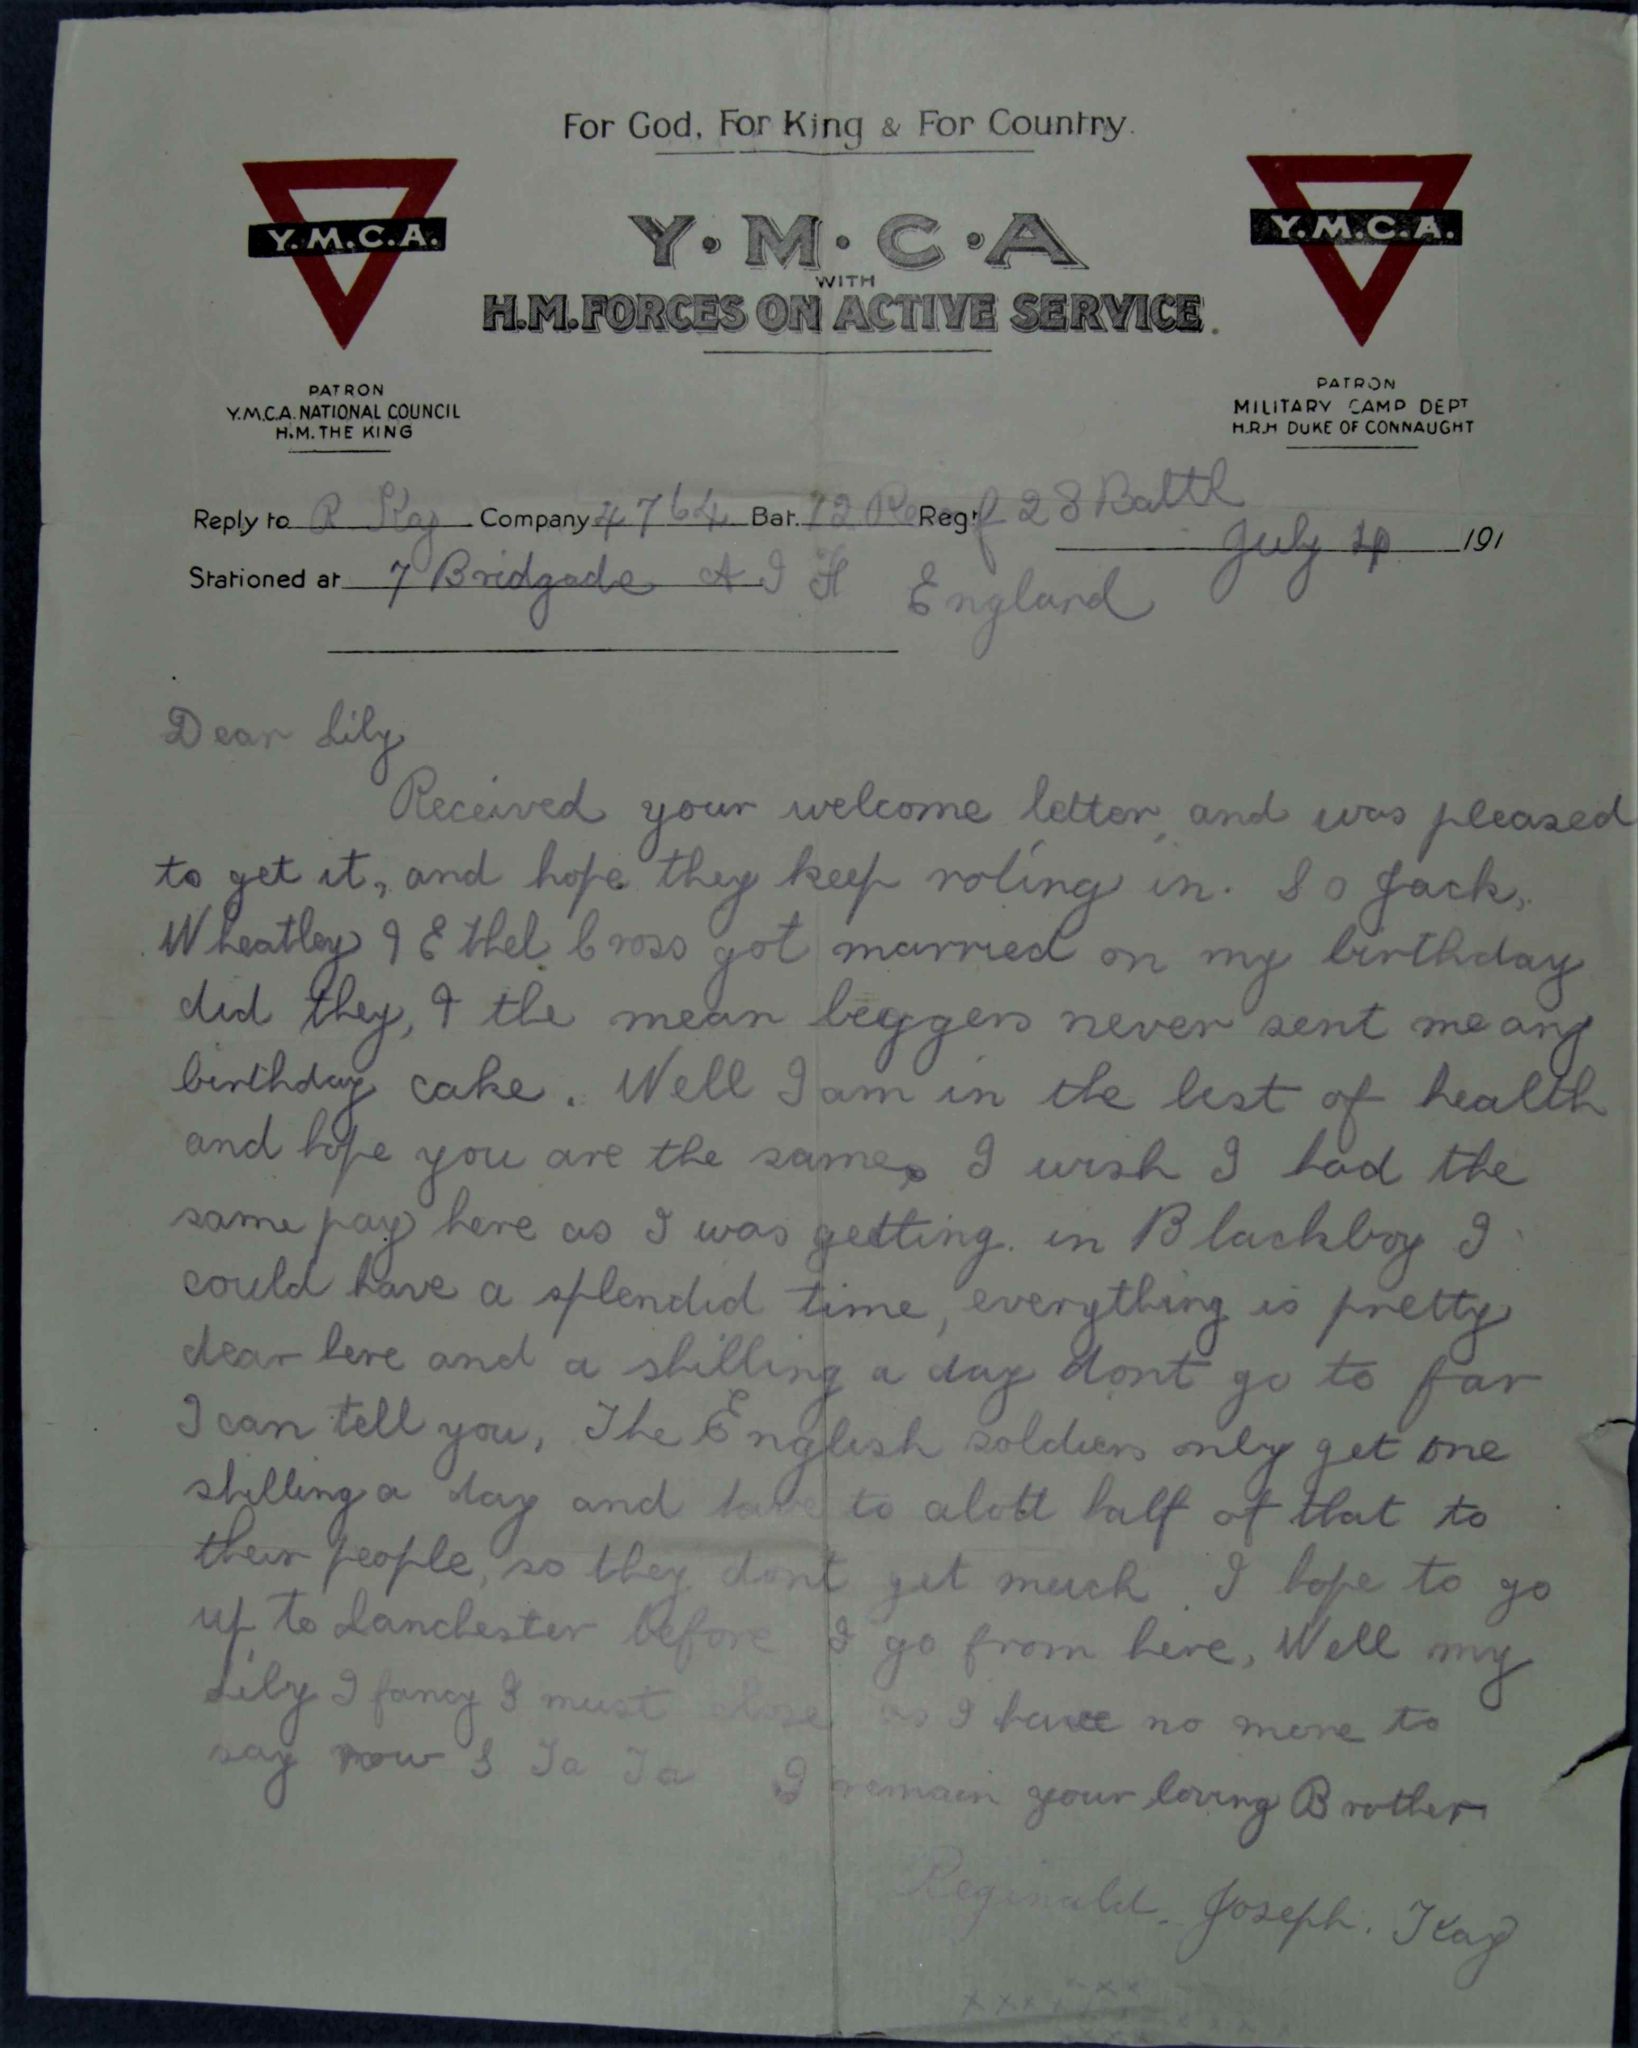 For God, For King & For Country.
Y.M.C.A.
Y.M.C.A.
Y.M.C.A
WITH
H.M. FORCES ON ACTIVE SERVICE.
PATRON
Y.M.C.A. NATIONAL COUNCIL
H.M. THE KING
PATRON
MILITARY CAMP DEPT
H.R.H DUKE OF CONNAUGHT
Reply to R Kay Company 4764 Bat. 12 Reinf Regt 28 Battl
July 191
Stationed at 7 Bridgade A I F England
Dear Lily
Received your welcome letter, and was pleased
to get it, and hope they keep roling in. So Jack,
Wheatley & Ethel Cross got married on my birthday
did they, & the mean beggers never sent me any
birthday cake. Well I am in the best of health
and hope you are the same, I wish I had the
same pay here as I was getting. in Blackboy I
could have a splendid time, everything is pretty
dear here and a shilling a day dont go to far
I can tell you, The English soldiers only get one
shilling a day and have to alott half of that to
their people, so they dont get much. I hope to go
up to Lanchester before I go from here, Well my
Lily I fancy I must close as I have no more to
say now Ta Ta I remain your loving Brother
Reginald. Joseph. Kay